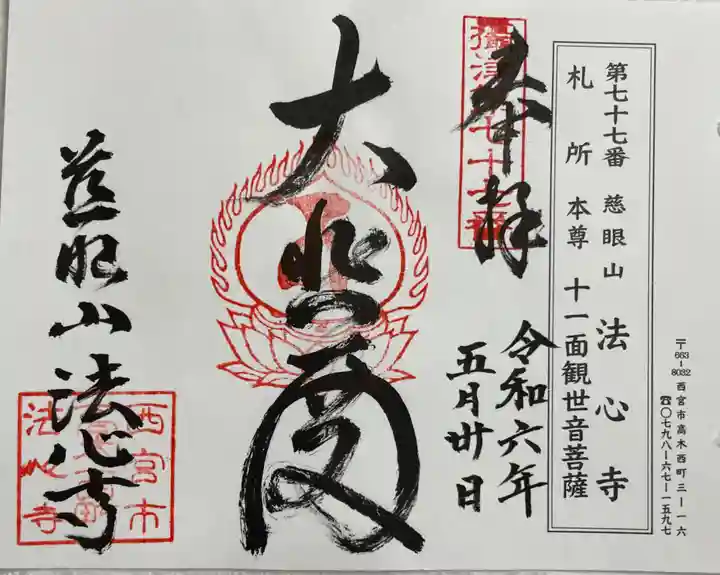 〒663-8032 西宮市高木西町三ー一六
☎〇七九八ー六七ー一五九七
第七十七番 慈眼山 法心寺
札所 本尊 十一面観世音菩薩
奉拝
令和六年
五月卅日
大悲殿
慈眼山法心寺
西宮市
法心寺